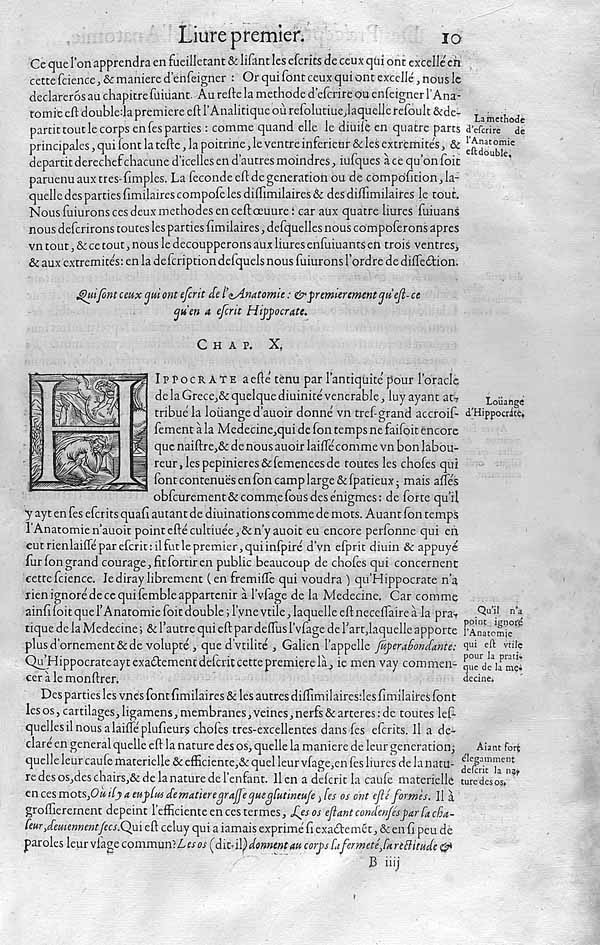 Liure premier.
10
Ce que l'on apprendra en fueilletant & lisant les escrits de ceux qui ont excellé en
cette science, & maniere d'enseigner : Or qui sont ceux qui ont excellé, nous le
declarerõs au chapitre suiuant. Au reste la methode d'escrire ou enseigner l'Ana-
tomie est double: la premiere est l'Analitique où resolutiue, laquelle resoult & de-
partit tout le corps en ses parties : comme quand elle le diuise en quatre parts
principales, qui sont la teste, la poitrine, le ventre inferieur & les extremités, &
departit derechef chacune d'icelles en d'autres moindres, iusques à ce qu'on soit
paruenu aux tres-simples. La seconde est de generation ou de composition, la-
quelle des parties similaires compose les dissimilaires & des dissimilaires le tout.
Nous suiurons ces deux methodes en cest œuure : car aux quatre liures suiuans
nous descrirons toutes les parties similaires, desquelles nous composerons apres
vn tout, & ce tout, nous le decoupperons aux liures ensuiuants en trois ventres,
& aux extremités: en la description desquels nous suiurons l'ordre de dissection.
La methode
d'escrire de
l'Anatomie
est double.
Qui sont ceux qui ont escrit de l'Anatomie : & premierement qu'est-ce
qu'en a escrit Hippocrate.
CHAP. X.
HIPPOCRATE a esté tenu par l'antiquité pour l'oracle
de la Grece, & quelque diuinité venerable, luy ayant at-
tribué la loüange d'auoir donné vn tres-grand accrois-
sement à la Medecine, qui de son temps ne faisoit encore
que naistre, & de nous auoir laissé comme vn bon labou-
reur, les pepinieres & semences de toutes les choses qui
sont contenuës en son camp large & spatieux; mais assés
obscurement & comme sous des énigmes : de sorte qu'il
y ayt en ses escrits quasi autant de diuinations comme de mots. Auant son temps
l'Anatomie n'auoit point esté cultiuée, & n'y auoit eu encore personne qui en
eut rien laissé par escrit : il fut le premier, qui inspiré d'vn esprit diuin & appuyé
sur son grand courage, fit sortir en public beaucoup de choses qui concernent
cette science. Ie diray librement (en fremisse qui voudra) qu'Hippocrate n'a
rien ignoré de ce qui semble appartenir à l'vsage de la Medecine. Car comme
ainsi soit que l'Anatomie soit double; l'vne vtile, laquelle est necessaire à la pra-
tique de la Medecine; & l'autre qui est par dessus l'vsage de l'art, laquelle apporte
plus d'ornement & de volupté, que d'vtilité, Galien l'appelle superabondante:
Qu'Hippocrate ayt exactement descrit cette premiere là, ie men vay commen-
cer à le monstrer.
Loüange
d'Hippocrate.
Qu'il n'a
point ignoré
l'Anatomie
qui est vtile
pour la prati-
que de la me-
decine.
Des parties les vnes sont similaires & les autres dissimilaires: les similaires sont
les os, cartilages, ligamens, membranes, veines, nerfs & arteres : de toutes les-
quelles il nous a laissé plusieurs choses tres-excellentes dans ses escrits. Il a de-
claré en general quelle est la nature des os, quelle la maniere de leur generation;
quelle leur cause materielle & efficiente, & quel leur vsage, en ses liures de la natu-
re des os, des chairs, & de la nature de l'enfant. Il en a descrit la cause materielle
en ces mots, Où il y a eu plus de matiere grasse que glutineuse, les os ont esté formés. Il à
grossierement depeint l'efficiente en ces termes, Les os estant condensés par la cha-
leur, deuiennent secs. Qui est celuy qui a iamais exprimé si exactemẽt, & en si peu de
paroles leur vsage commun? Les os (dit-il) donnent au corps la fermeté, la rectitude &
Aiant fort
élegamment
descrit la na-
ture des os.
B iiij